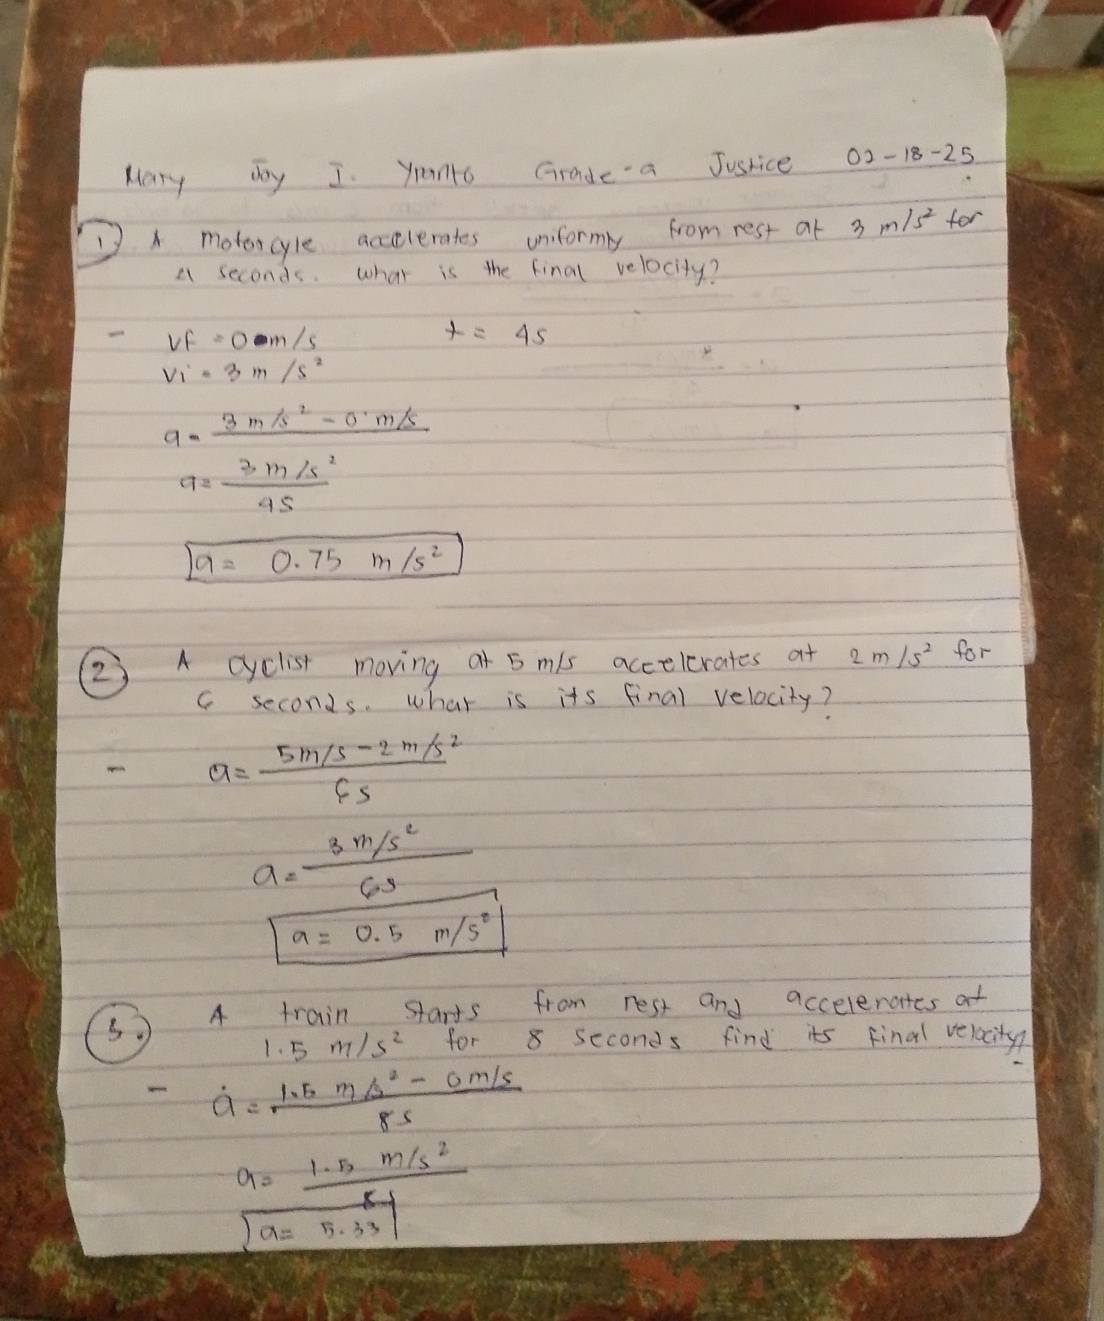 Mary Joy I. Grade-9 Justice 02-18-25
1) A motorcyle accelerates uniformly from rest at 3 m/s² for
4 seconds. what is the final velocity?
- vf = 0 m/s t = 4s
vi = 3 m/s²
a = 3 m/s² - 0 m/s
a = 3 m/s²
4s
a = 0.75 m/s²
2) A cyclist moving at 5 m/s accelerates at 2 m/s² for
6 seconds. what is its final velocity?
- a = 5m/s - 2 m/s²
6s
a = 3 m/s²
6s
a = 0.5 m/s²
3.) A train starts from rest and accelerates at
1.5 m/s² for 8 seconds find its final velocity?
- a = 1.5 m/s² - 0m/s
8s
a = 1.5 m/s²
8
a = 5.33